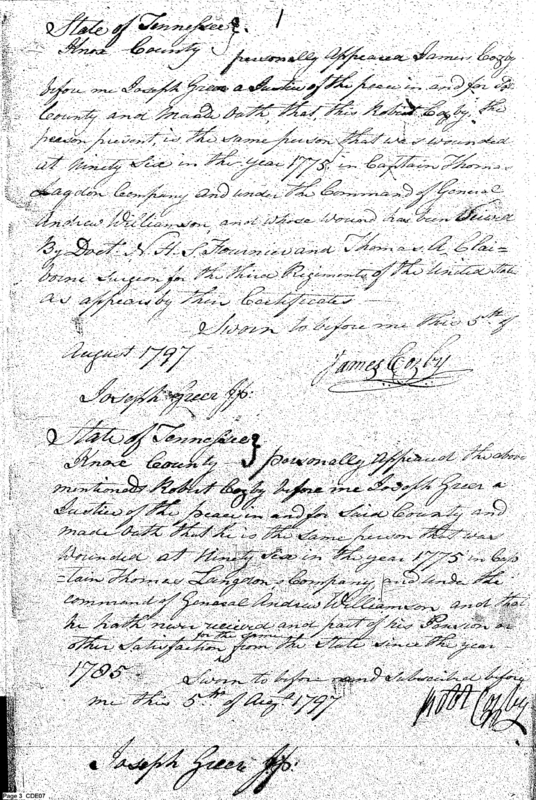 1
State of Tennessee }
Knox County personally Appeared James Cozby
before me Joseph Greer a Justice of the peace in and for Sd
County and Made Oath, that, this Robert Cozby, the
person present, is the same person that was wounded
at Ninty Six in the year 1775 in Captain Thomas
Lagdon Company and under the Command of General
Andrew Williamson, and whose wound has been
By Doct. N. H. S. Fournier and Thomas, A, Clai=
borne Surgeon for the third Regiment of the United States
as appears by their Certificates —
Sworn to before me this 5th of
August 1797
James Cozby
Joseph Greer Jp:
State of Tennessee }
Knox County personally Appeared the above
mentioned Robert Cozby before me Joseph Greer a
Justice of the peace in and for Said County and
made Oath that he is the same person that was
Wounded at Ninty Six in the year 1775 in Cap
=tain Thomas Langdons Company and under the
command of General Andrew Williamson and that
he hath never recieved and part of his Pension or
for the same
other Satisfaction from the State since the year
1785 Sworn to before and Subscribed before
me this 5th of Augt 1797
Robt Cozby
Joseph Greer Jp:
Page 3 CDE07